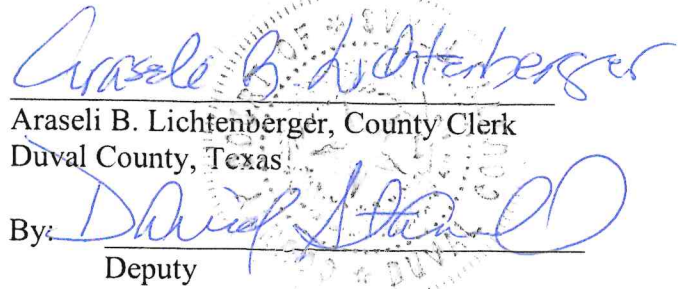 Araseli B. Lichtenberger
Araseli B. Lichtenberger, County Clerk
Duval County, Texas
By:
David
Deputy